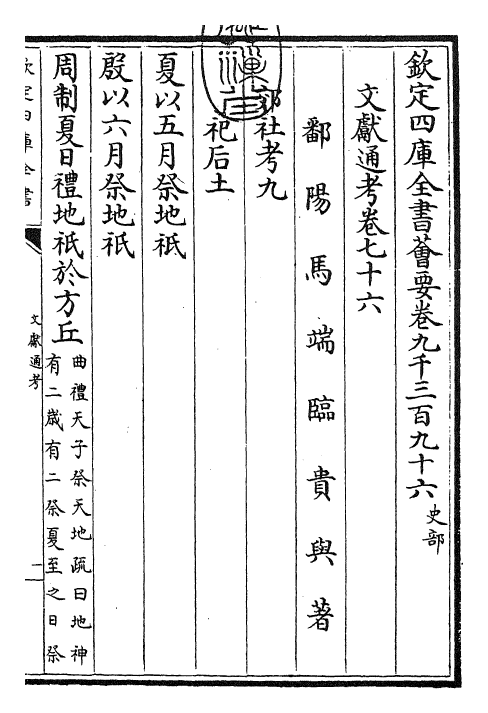 欽定四庫全書薈要卷九千三百九十六 史部
文獻通考卷七十六
鄱陽馬端臨貴與著
郊社考九
祀后土
夏以五月祭地祇
殷以六月祭地祇
周制夏日禮地祇於方丘
曲禮天子祭天地疏曰地神
有二歲有二祭夏至之日祭
欽定四庫全書
文獻通考
一